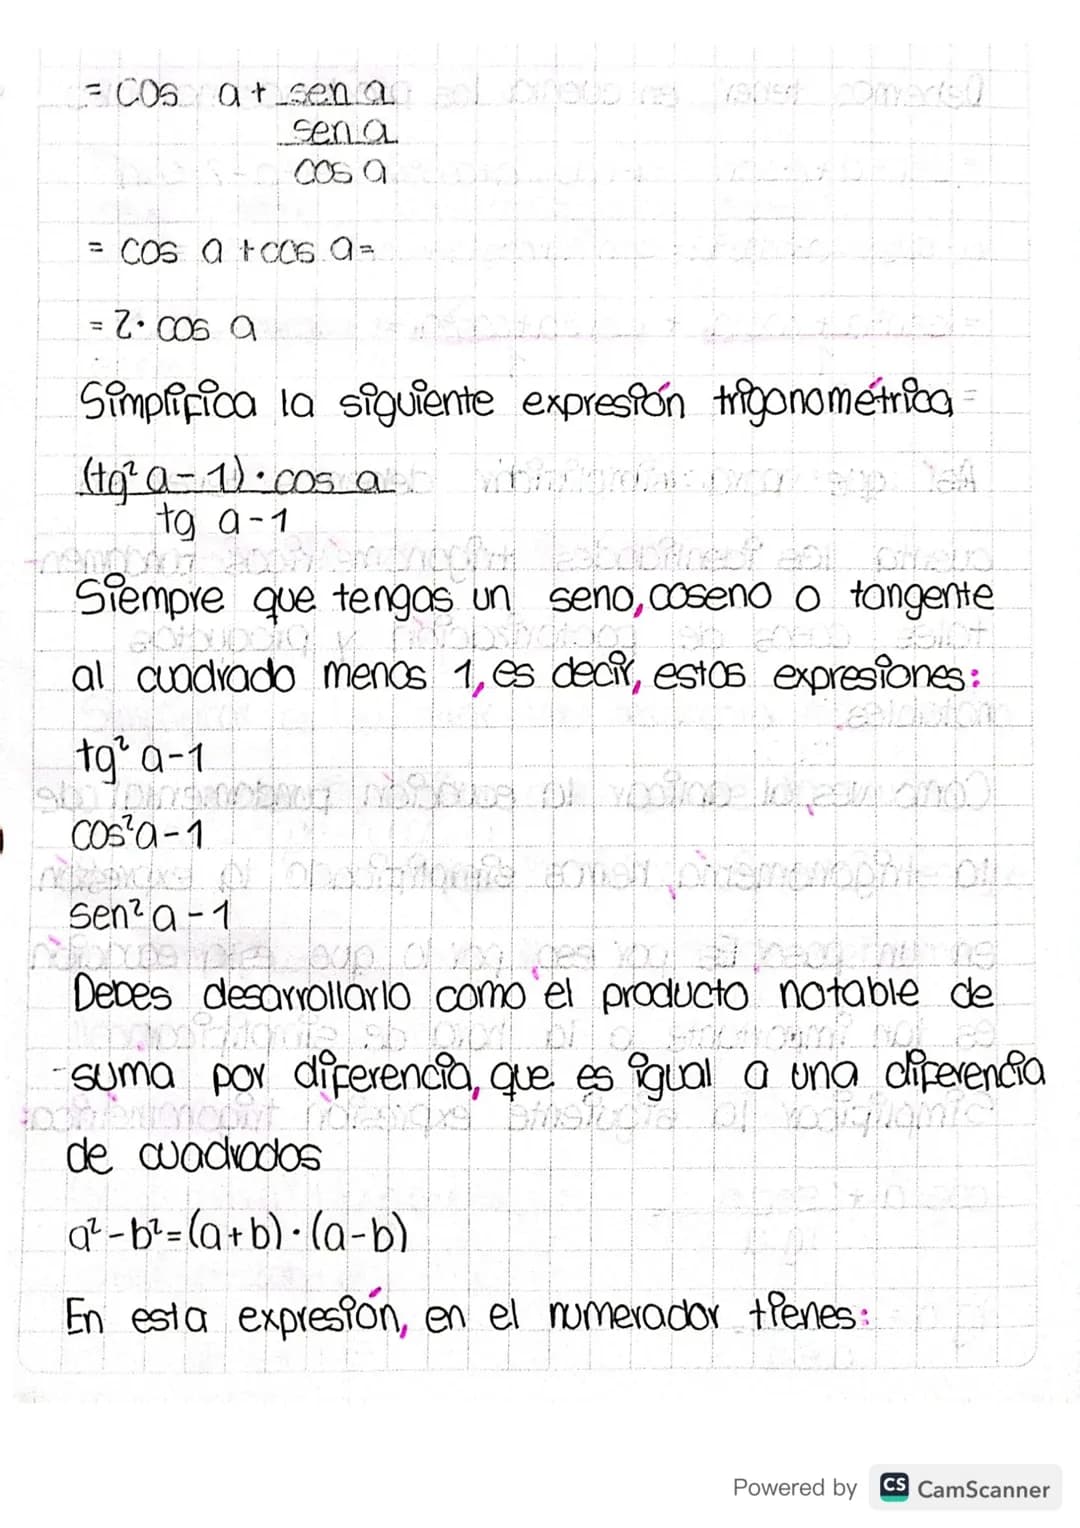 = cos a + sen a
sen a
cos a
= cos a + cos a =
= 2 · cos a
Simplifica la siguiente expresión trigonométrica =
(tg² a - 1) · cos a
tg a - 1
Siempre que tengas un seno, coseno o tangente
al cuadrado menos 1, es decir, estas expresiones:
tg² a - 1
cos² a - 1
sen² a - 1
Debes desarrollarlo como el producto notable de
suma por diferencia, que es igual a una diferencia
de cuadrados
a² - b² = (a + b) · (a - b)
En esta expresión, en el numerador tienes:
Powered by CS CamScanner